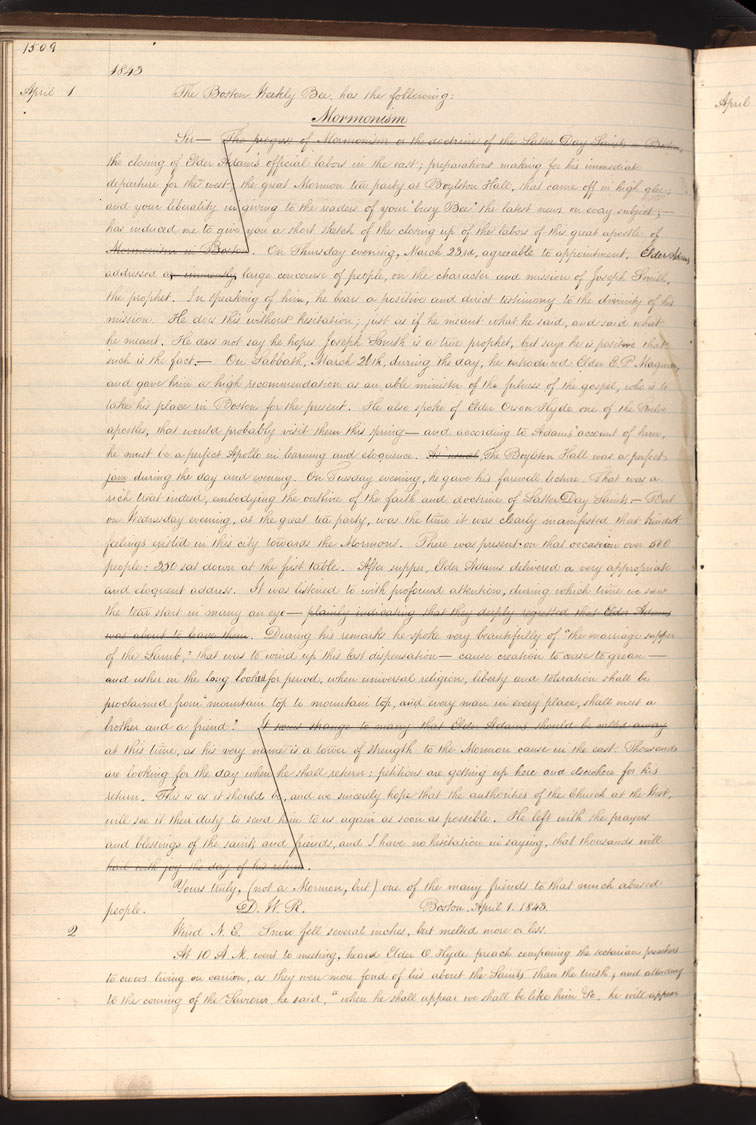 1509
1843
April 1 The Boston Weekly Bee, has the following:
Mormonism
Sir— The progress of Mormonism or the doctrine of the Latter Day Saints in Boston,
the closing of Elder Adam's official labors in the east; preparations making for his immediate
departure for the west; the great Mormon tea party at Boylston Hall, that came off in high glee;
and your liberality in giving to the readers of your "busy Bee" the latest news on every subject;—
has induced me to give you a short sketch of the closing up of the labors of this great apostle of
Mormonism in Boston. On Thursday evening, March 23rd, agreeable to appointment, Elder Adams
addressed a large concourse of people, on the character and mission of Joseph Smith,
the prophet. In speaking of him, he bears a positive and direct testimony to the divinity of his
mission. He does this without hesitation; just as if he meant what he said, and said what
he meant. He does not say he hopes Joseph Smith is a true prophet, but says he is positive that
such is the fact.— On Sabbath, March 26th, during the day, he introduced Elder E. P. Maginn,
and gave him a high recommendation as an able minister of the fulness of the gospel, who is to
take his place in Boston for the present. He also spoke of Elder Orson Hyde one of the Twelve
apostles, that would probably visit them this spring— and according to Adams' account of him,
he must be a perfect Apollo in learning and eloquence. As usual The Boylston Hall was a perfect
jam during the day and evening. On Tuesday evening, he gave his farewell lecture. That was a
rich treat indeed, embodying the outline of the faith and doctrine of Latter Day Saints.— But
on Wednesday evening, at the great tea party, was the time it was clearly manifested that kindest
feelings existed in this city towards the Mormons. There was present on that occasion over 500
people: 350 sat down at the first table. After supper, Elder Adams delivered a very appropriate
and eloquent address. It was listened to with profound attention, during which time we saw
the tear start in many an eye— plainly indicating that they deeply regretted that Elder Adams
was about to leave them. During his remarks he spoke very beautifully of "the marriage supper
of the Lamb," that was to wind up this last dispensation— cause creation to cease to groan—
and usher in the long looked for period, when universal religion, liberty and toleration shall be
proclaimed from "mountain top to mountain top, and every man in every place, shall meet a
brother and a friend." It seems strange to many that Elder Adams should be called away
at this time, as his very name is a tower of strength to the Mormon cause in the east. Thousands
are looking for the day when he shall return: petitions are getting up here and elsewhere for his
return. This is as it should be, and we sincerely hope that the authorities of the Church at the West,
will see it their duty to send him to us again as soon as possible. He left with the prayers
and blessings of the saints and friends, and I have no hesitation in saying, that thousands will
hail with joy the day of his return.
Yours truly, (not a Mormon, but) one of the many friends to that much abused
people. D. W. R. Boston, April 1. 1843.
2 Wind N. E. Snow fell several inches, but melted more or less.
At 10 A. M. went to meeting, heard Elder O. Hyde preach comparing the sectarian preachers
to crows living on carrion, as they were more fond of lies about the Saints than the truth; and alluding
to the coming of the Saviour, he said, "when he shall appear we shall be like him &c. he will appear
April